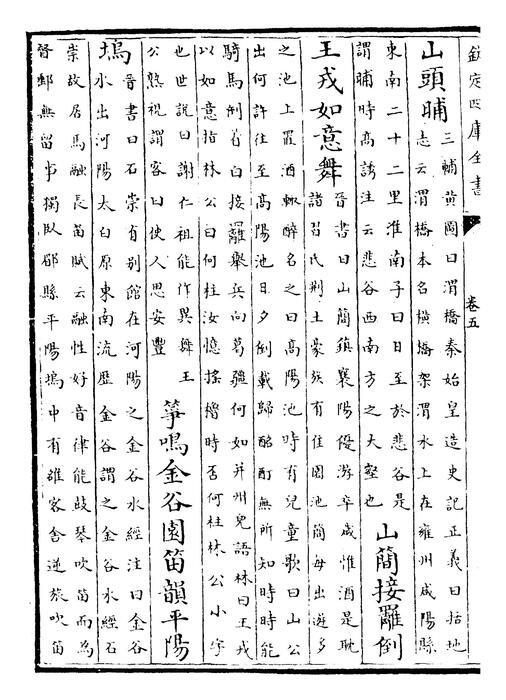 欽定四庫全書
卷五
山頭晡
三輔黄圖曰渭橋秦始皇造史記正義曰括地
志云渭橋本名横橋架渭水上在雍州咸陽縣
東南二十二里淮南子曰日至於悲谷是
謂晡時髙誘注云悲谷西南方之大壑也
山簡接䍦倒
王戎如意舞
晉書曰山簡鎮襄陽優游卒歳惟酒是耽
諸習氏荆土豪族有佳園池簡毎出遊多
之池上置酒輒醉名之曰髙陽池時有兒童歌曰山公
出何許往至髙陽池日夕倒載歸酩酊無所知時時能
騎馬倒着白接䍦舉兵向葛疆何如并州兒語林曰王戎
以如意指林公曰何柱汝憶摇櫓時否何柱林公小字
也世說曰謝仁祖能作異舞王
公熟視謂客曰使人思安豐
筝鳴金谷園笛韻平陽
塢
晉書曰石崇有别館在河陽之金谷水經注曰金谷
水出河陽太白原東南流歴金谷謂之金谷水經石
崇故居馬融長笛賦云融性好音律能鼓琴吹笛而為
督郵無留事獨臥郿縣平陽塢中有雒客舍逆旅吹笛